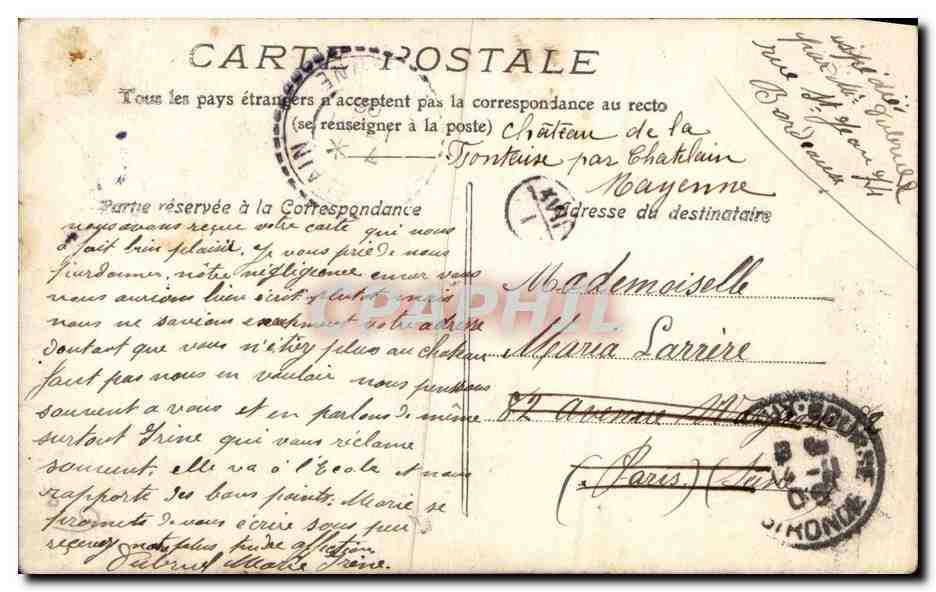 CARTE POSTALE
Tous les pays étrangers n'acceptent pas la correspondance au recto
(se renseigner à la poste)
Château de la
par Chatelain
Mayenne
rue St Jean
Bordeaux
Partie réservée à la Correspondance
Adresse du destinataire
nous avons reçue votre carte qui nous
a fait bien plaisir. Je vous prie de nous
pardonner, nôtre négligence envers vous
nous aurions bien écrit plutôt mais
nous ne savions votre adresse
doutant que vous n'étiez plus au chateau
faut pas nous en vouloir nous pensons
souvent a vous et en parlons de même
surtout Irène qui vous réclame
souvent, elle va à l'Ecole et nous
rapporte des bons points. Marie se
promets de vous écrire sous peu
recevez nos plus tendre affection
Gabriel Marie Irène.
Mademoiselle
Maria Larrère
82 avenue
(Paris) (Seine
CPAPHIL
AIN
BOURSE
GIRONDE